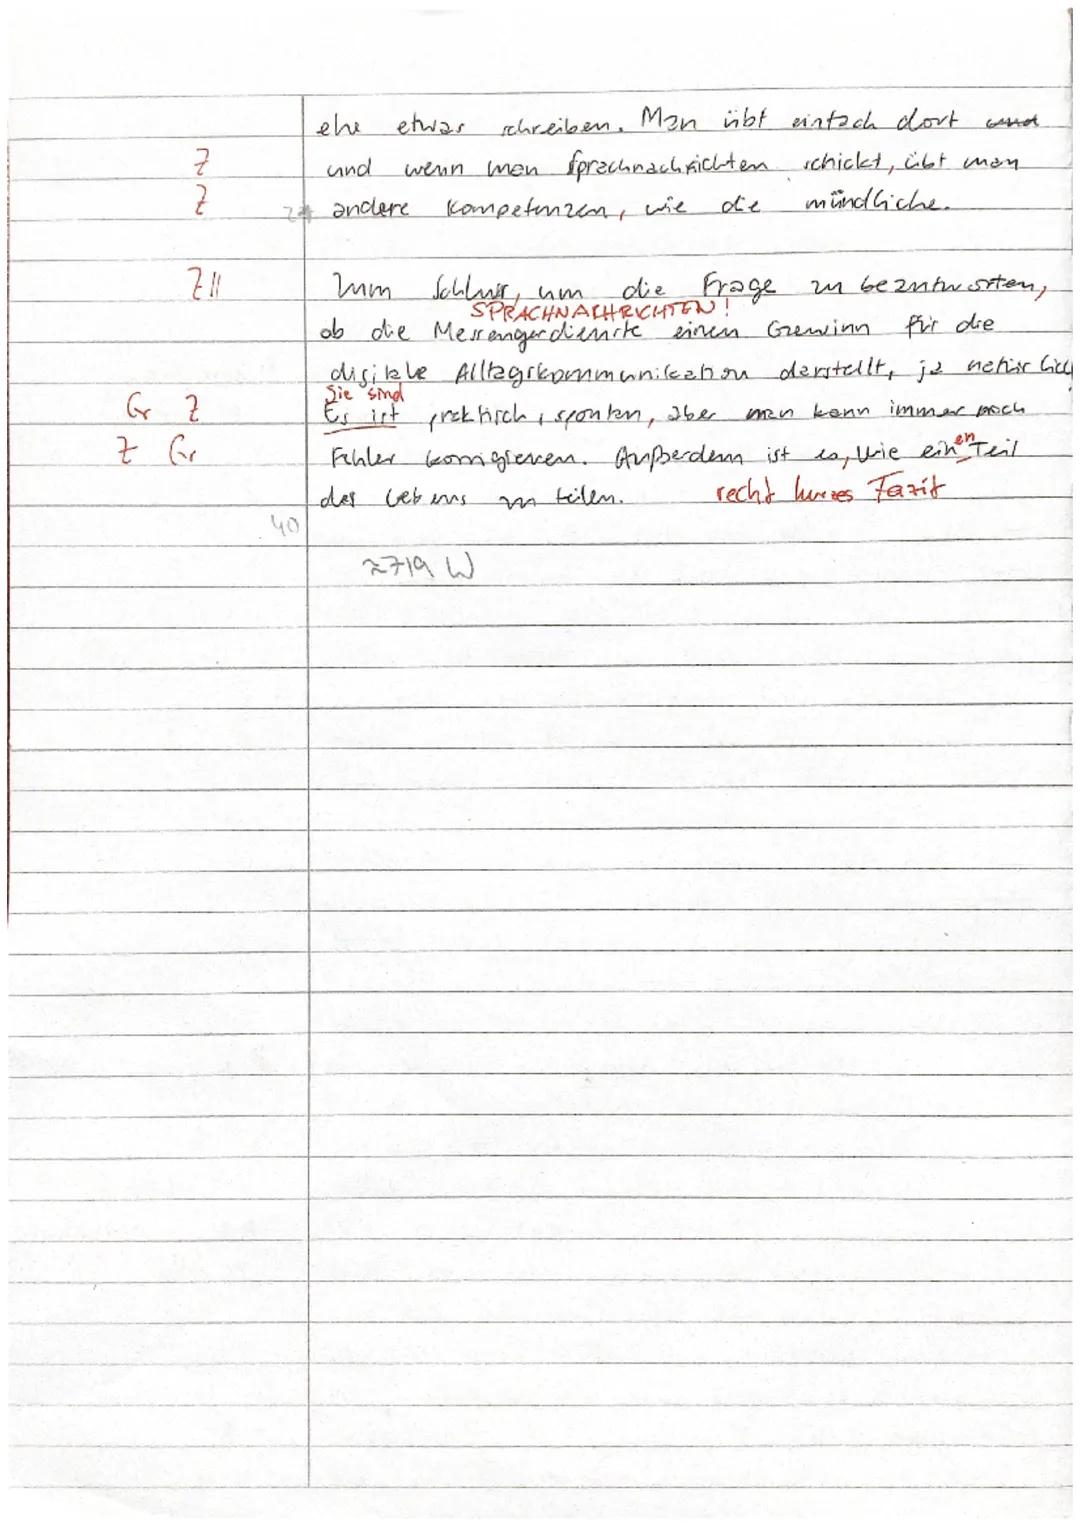 ehe etwas schreiben. Man übt einfach dort und
Z und wenn man Sprachnachrichten schickt, übt man
Z andere Kompetenzen, wie die mündliche.
Z|| Zum Schluss, um die Frage zu beantworten,
SPRACHNACHRICHTEN!
ob die Messengerdienste einen Gewinn für die
digitale Alltagskommunikation darstellt, ja natürlich
Sie sind
Gr Z Es ist praktisch, spontan, aber man kann immer noch
en
Z Gr Fehler korrigieren. Außerdem ist es, wie ein Teil
des Lebens zu teilen. recht kurzes Fazit
40
≈719 W